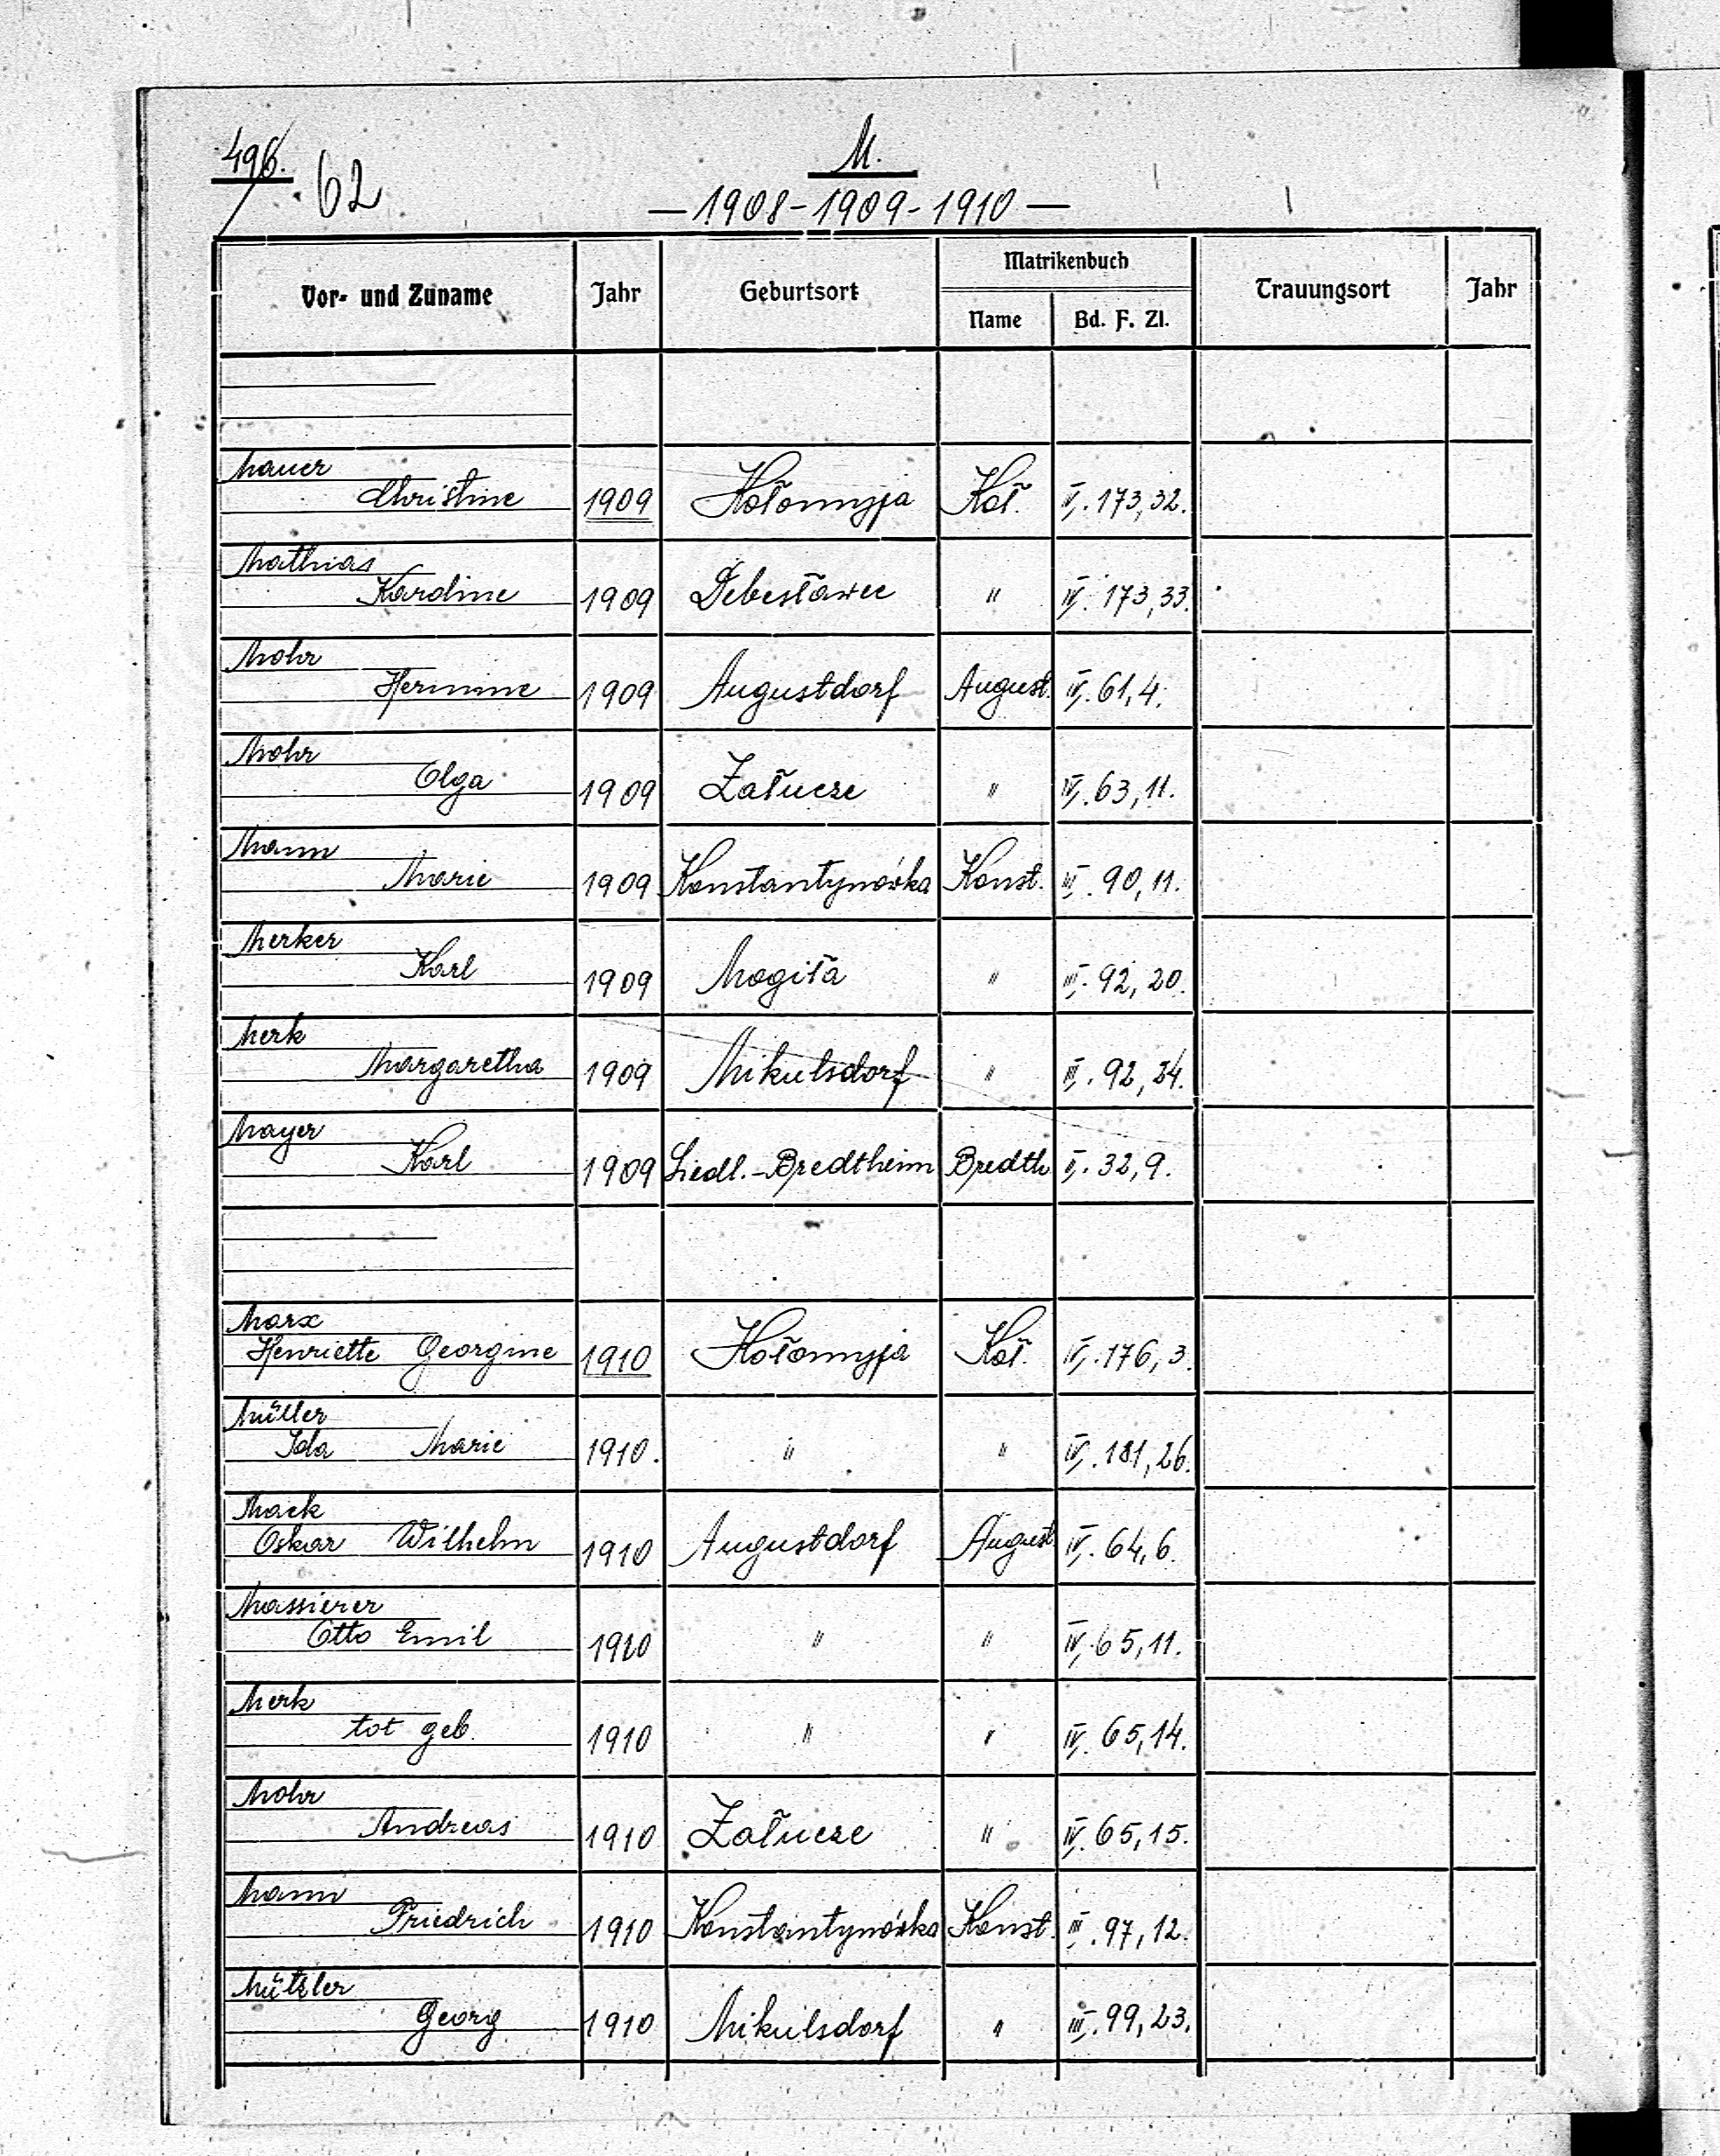 496.
62
M.
— 1908 - 1909 - 1910 —
Vor- und Zuname Jahr Geburtsort Matrikenbuch Trauungsort Jahr
Name Bd. F. Zl.
Mauer
Christine 1909 Kołomyja Koł. 173, 32.
Mathias
Karoline 1909 Debesławce " IV. 173, 33.
Mohr
Hermine 1909 Augustdorf August. IV. 61, 4.
Mohr
Olga 1909 Załucze " IV. 63, 11.
Mann
Marie 1909 Konstantynówka Konst. III. 90, 11.
Merker
Karl 1909 Mogiła " III. 92, 20.
Merk
Margaretha 1909 Mikulsdorf " III. 92, 24.
Mayer
Karl 1909 Siedl.-Bredtheim Bredth II. 32, 9.
Marx
Henriette Georgine 1910 Kołomyja Koł. IV. 176, 3.
Müller
Ida Marie 1910. " " IV. 181, 26.
Mack
Oskar Wilhelm 1910 Augustdorf August. IV. 64, 6.
Massierer
Otto Emil 1910 " " IV. 65, 11.
Merk
tot geb. 1910 " " IV. 65, 14.
Mohr
Andreas 1910 Załucze " IV. 65, 15.
Mann
Friedrich 1910 Konstantynówka Konst. III. 97, 12.
Mützler
Georg 1910 Mikulsdorf " III. 99, 23.